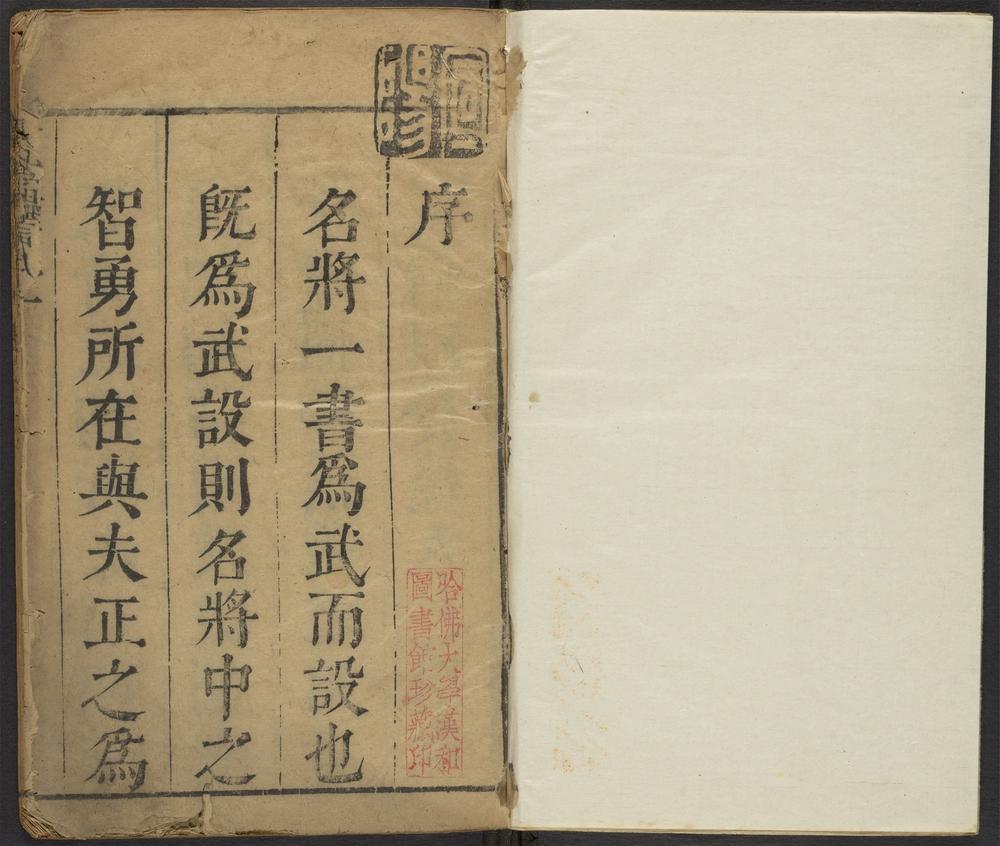 序
名將一書爲武而設也
既爲武設則名將中之
智勇所在與夫正之爲
哈佛大學漢和
圖書館珍藏印